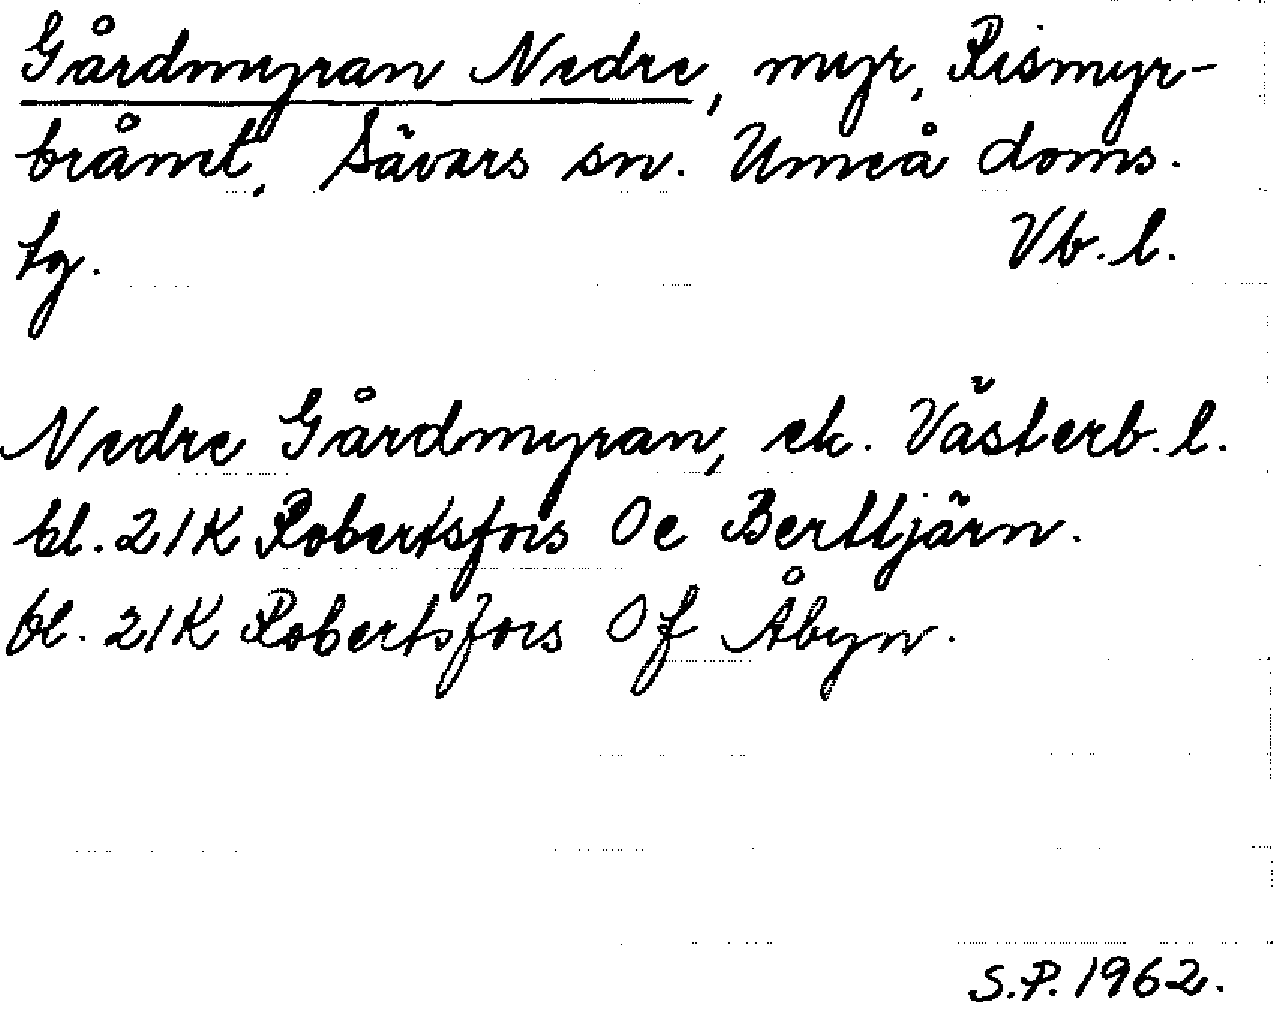 Gårdmyran Nedre, myr, Rismyr-
brånet, Sävars sn. Umeå doms.
tg. Vb. l.
Nedre Gårdmyran, ek. Västerb. l.
bl. 21K Robertsfors Oe Berttjärn.
bl. 21K Robertsfors Of Åbyn.
S.P. 1962.